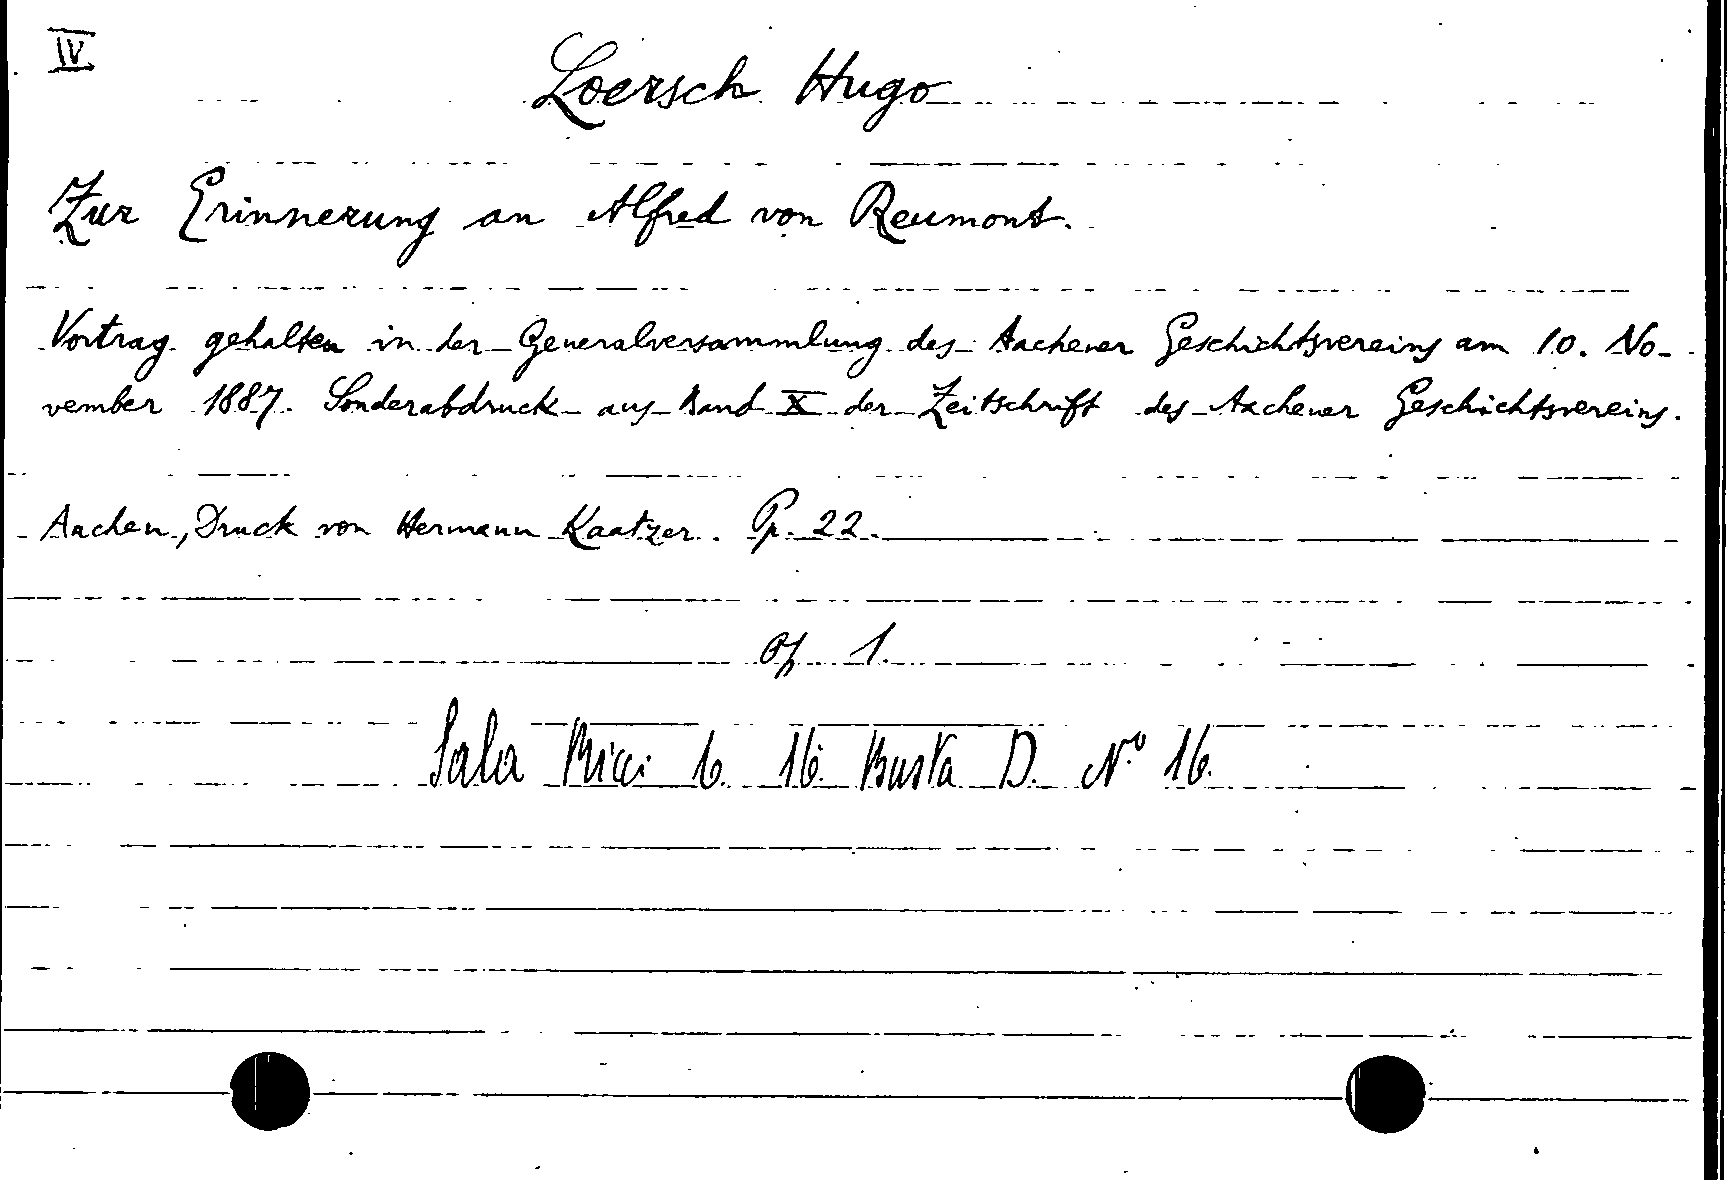 IV
Loersch Hugo
Zur Erinnerung an Alfred von Reumont.
Vortrag gehalten in der Generalversammlung des Aachener Geschichtsvereins am 10. No-
vember 1887. Sonderabdruck aus Band X der Zeitschrift des Aachener Geschichtsvereins.
Aachen, Druck von Hermann Kaatzer. Pp. 22.
op 1.
Sala Ricci 6. 16. Busta D. Nº 16.